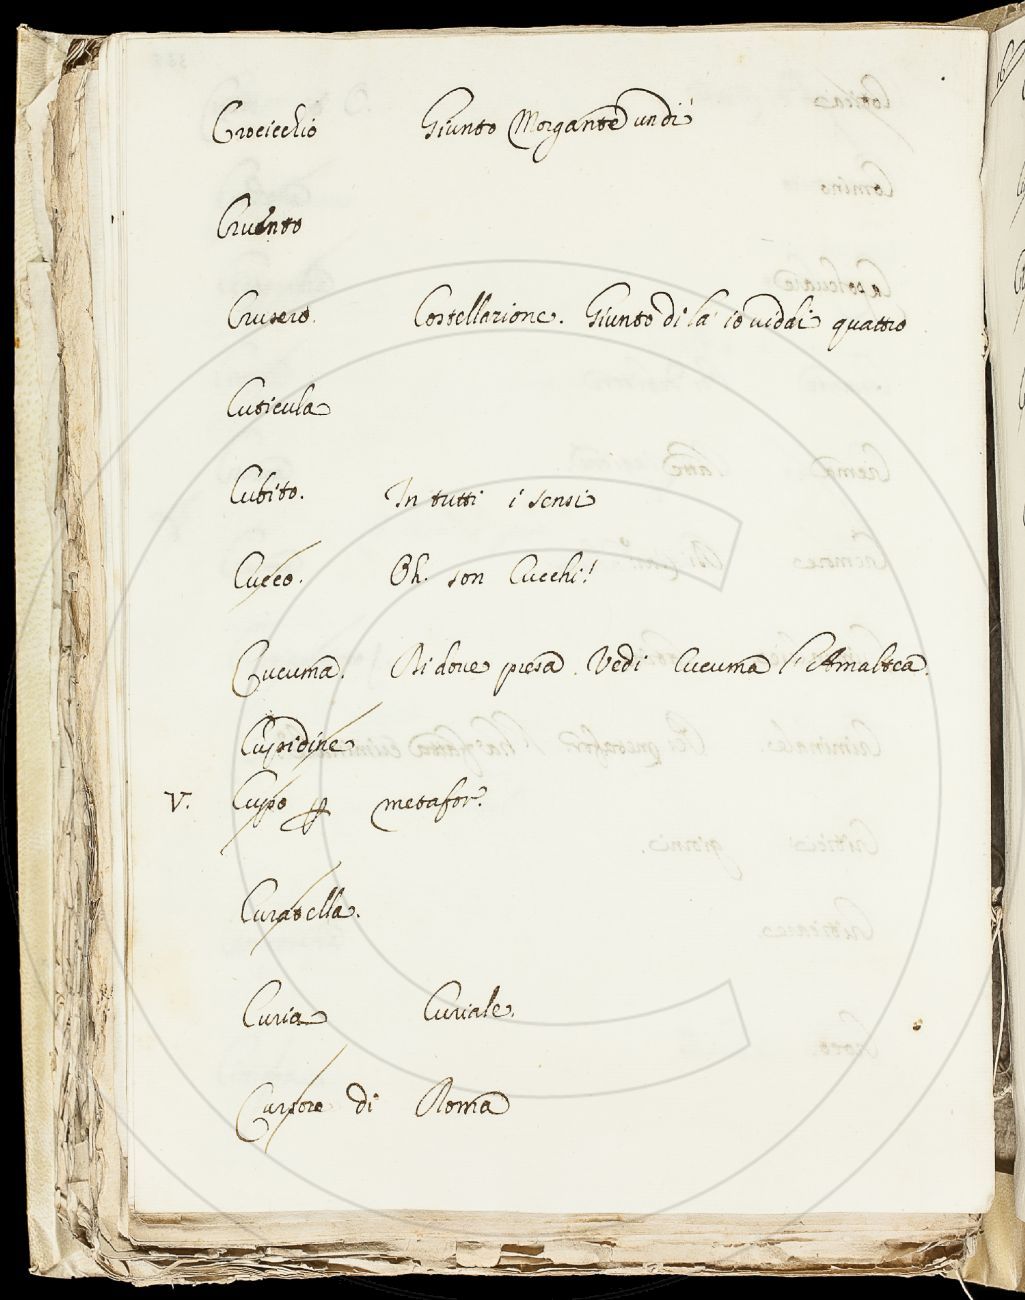 Crocicchio Giunto Morgante un dì
Cruento
Crusero. Costellazione. Giunto di là io viddi quattro
Cuticula
Cubito. In tutti i sensi
Cucco. Oh. son Cucchi!
Cucuma. Di dove presa. Vedi Cucuma l'Amaltea.
Cupidine
V. Cupo p metafor.
Curatella.
Curia Curiale.
Cursore di Roma